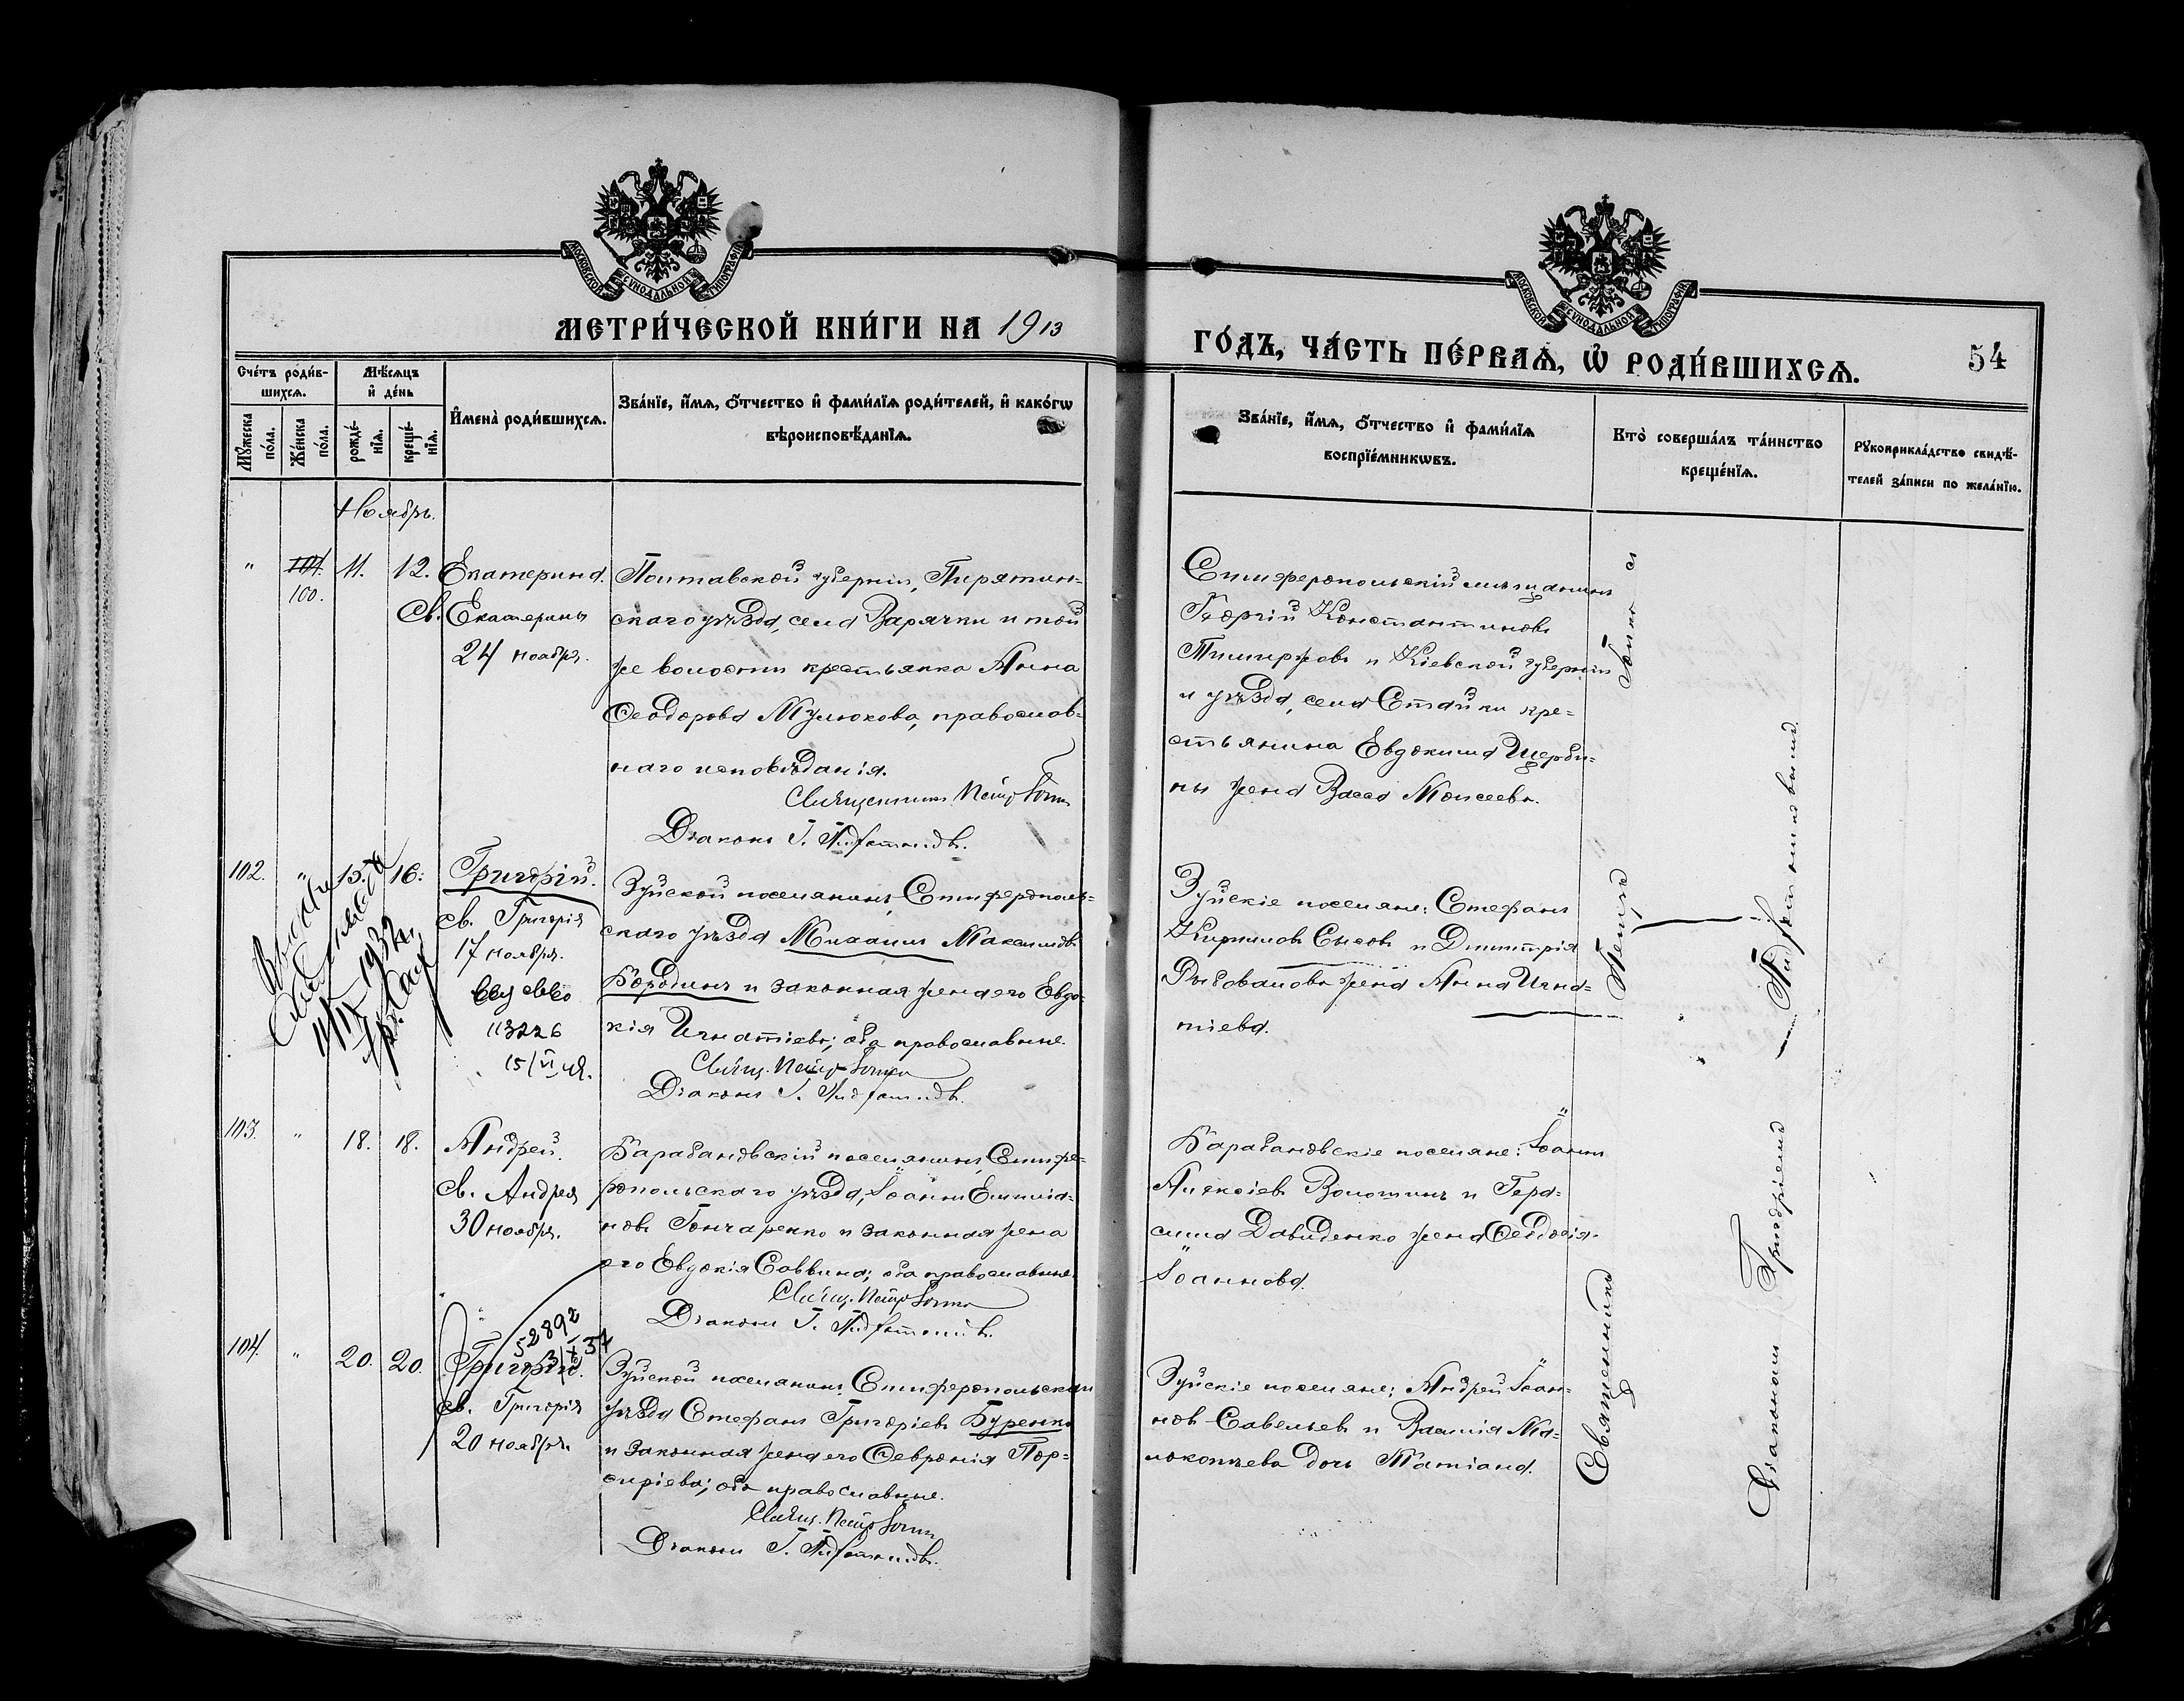 МОСКОВСКОЙ СѴНОДАЛЬНОЙ ТИПОГРАФІИ
МОСКОВСКОЙ СѴНОДАЛЬНОЙ ТИПОГРАФІИ
МЕТРИ́ЧЕСКОЙ КНИ́ГИ НА 1913
ГО́ДЪ, ЧА́СТЬ ПЕ́РВАѦ, Ѽ РОДИ́ВШИХСѦ.
54
Сче́тъ роди́в-
шихсѧ.
Мѣ́сѧцъ
и҆ де́нь
Мꙋ́жеска
по́ла.
Же́нска
по́ла.
рожде́-
нїѧ.
креще́-
нїѧ.
И҆мена̀ роди́вшихсѧ.
Зва́нїе, и҆́мѧ, ѻ҆́тчество и҆ фами́лїѧ роди́телей, и҆ како́гѡ
вѣроисповѣ́данїѧ.
Зва́нїе, и҆́мѧ, ѻ҆́тчество и҆ фами́лїѧ
воспрїе́мникѡвъ.
Кто̀ соверша́лъ та́инство
креще́нїѧ.
Рꙋкоприкла́дство свидѣ́-
телей за́писи по жела́нїю.
Ноябрь.
" 101. 11. 12. Екатерина.
100.
св. Екатерины
24 ноября.
Полтавской губерніи, Пирятин-
скаго уѣзда, села Варячки и той
же волости крестьянка Анна
Ѳеодорова Мулюкова, православ-
наго исповѣданія.
Священникъ Петръ
Діаконъ Г.
Симферопольскій мѣщанинъ
Георгій Константиновъ
и Кіевской губерніи
и уѣзда, села Стайки кре-
стьянина Евдокима Щерби-
ны жена Васса Моисеева.
102. " 15. 16. Григорій.
св. Григорія
17 ноября.
113226
15/VI
1932
Зуйской поселянинъ, Симферополь-
скаго уѣзда Михаилъ Максимовъ
Бородинъ и законная жена его Евдо-
кія Игнатіева; оба православные.
Свящ. Петръ
Діаконъ Г.
Зуйскіе поселяне: Стефанъ
Кирилловъ Сысовъ и Димитрія
жена Анна Игна-
тіева.
103. " 18. 18. Андрей.
св. Андрея
30 ноября.
Барабановскій поселянинъ, Симфе-
ропольскаго уѣзда, Іоаннъ Емилiа-
новъ Гончаренко и законная жена
его Евдокія Саввина; оба православные.
Свящ. Петръ
Діаконъ Г.
Барабановскіе поселяне: Іоаннъ
Алексіевъ Волошинъ и Гера-
сима Давиденко жена Ѳеодосія
Іоаннова.
52892
104. " 20. 20. Григорій.
св. Григорія
20 ноября.
Зуйской поселянинъ Симферопольскаго
уѣзда Стефанъ Григоріевъ Буренко
и законная жена его Ѳевронія Пор-
фиріева; оба православные.
Свящ. Петръ
Діаконъ Г.
Зуйскіе поселяне: Андрей Іоан-
новъ Савельевъ и Василія Ма-
локопцева дочь Татіана.
Священникъ Петръ
Діакономъ Григоріемъ